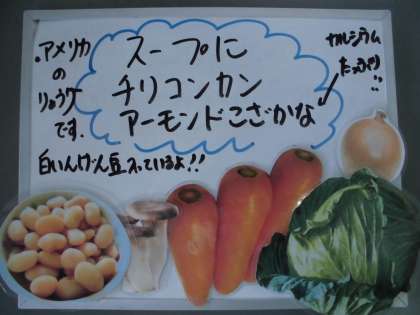 ・アメリカ
の
りょうり
です。
スープに
チリコンカン
アーモンドこざかな
カルシウム
たっぷり!!
白いんげん豆入っているよ!!